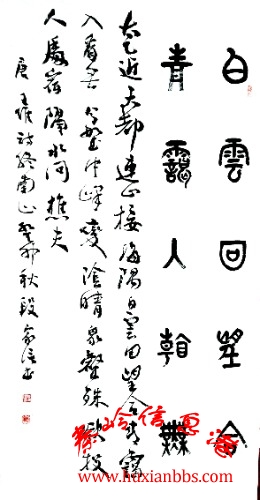 白雲回望合
青靄入看無
太乙近天都連山接海隅白雲回望合青靄
入看無分野中峰變陰晴衆壑殊欲投
人處宿隔水問樵夫
唐王維詩終南山癸卯秋段家信书
www.huxianbbs.com